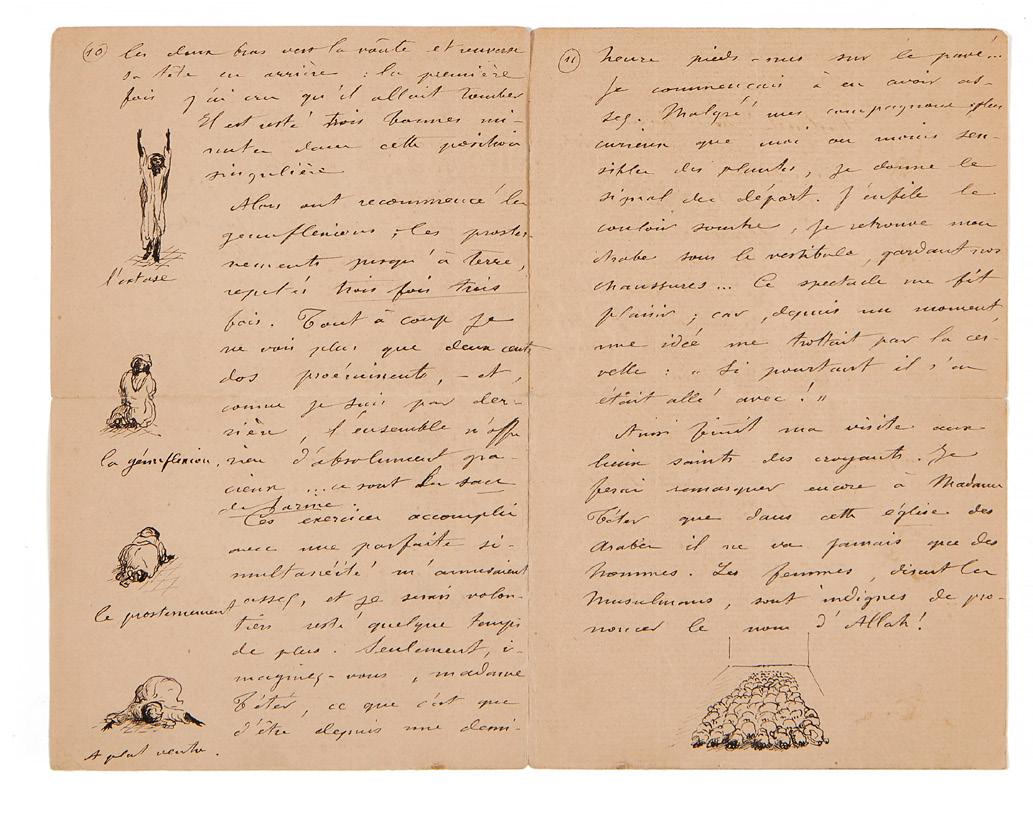 (10) les deux bras vers la voûte et renverse
sa tête en arrière : la première
fois j'ai cru qu'il allait tomber
Il est resté trois bonnes mi-
nutes dans cette position
singulière
l'extase
Alors ont recommencé les
genuflexions, les proster-
nements jusqu'à terre,
repetés trois fois trois
fois. Tout à coup je
ne vois plus que deux cents
dos proéminents, - et,
comme je suis par der-
rière, l'ensemble n'offre
la génuflexion.
rien d'absolument gra-
cieux ... ce sont des sacs
de farine
Ces exercices accomplis
avec une parfaite si-
multanéité m'amusaient
assez, et je serais volon-
le prosternement
tiers resté quelque temps
de plus. Seulement, i-
maginez-vous, madame
Têter, ce que c'est que
d'être depuis une demi-
A plat ventre.
(11) heure pieds-nus sur le pavé...
Je commençais à en avoir as-
sez. Malgré mes compagnons plus
curieux que moi ou moins sen-
sibles des plantes, je donne le
signal du départ. J'enfile le
couloir sombre, je retrouve mon
Arabe sous le vestibule, gardant nos
chaussures... Ce spectacle me fit
plaisir ; car, depuis un moment
une idée me trottait par la cer-
velle : " Si pourtant il s'en
était allé avec ! "
Ainsi finit ma visite aux
lieux saints des croyants. Je
ferai remarquer encore à Madame
Têter que dans cette église des
Arabes il ne va jamais que des
hommes. Les femmes, disent les
Musulmans, sont indignes de pro-
noncer le nom d'Allah !